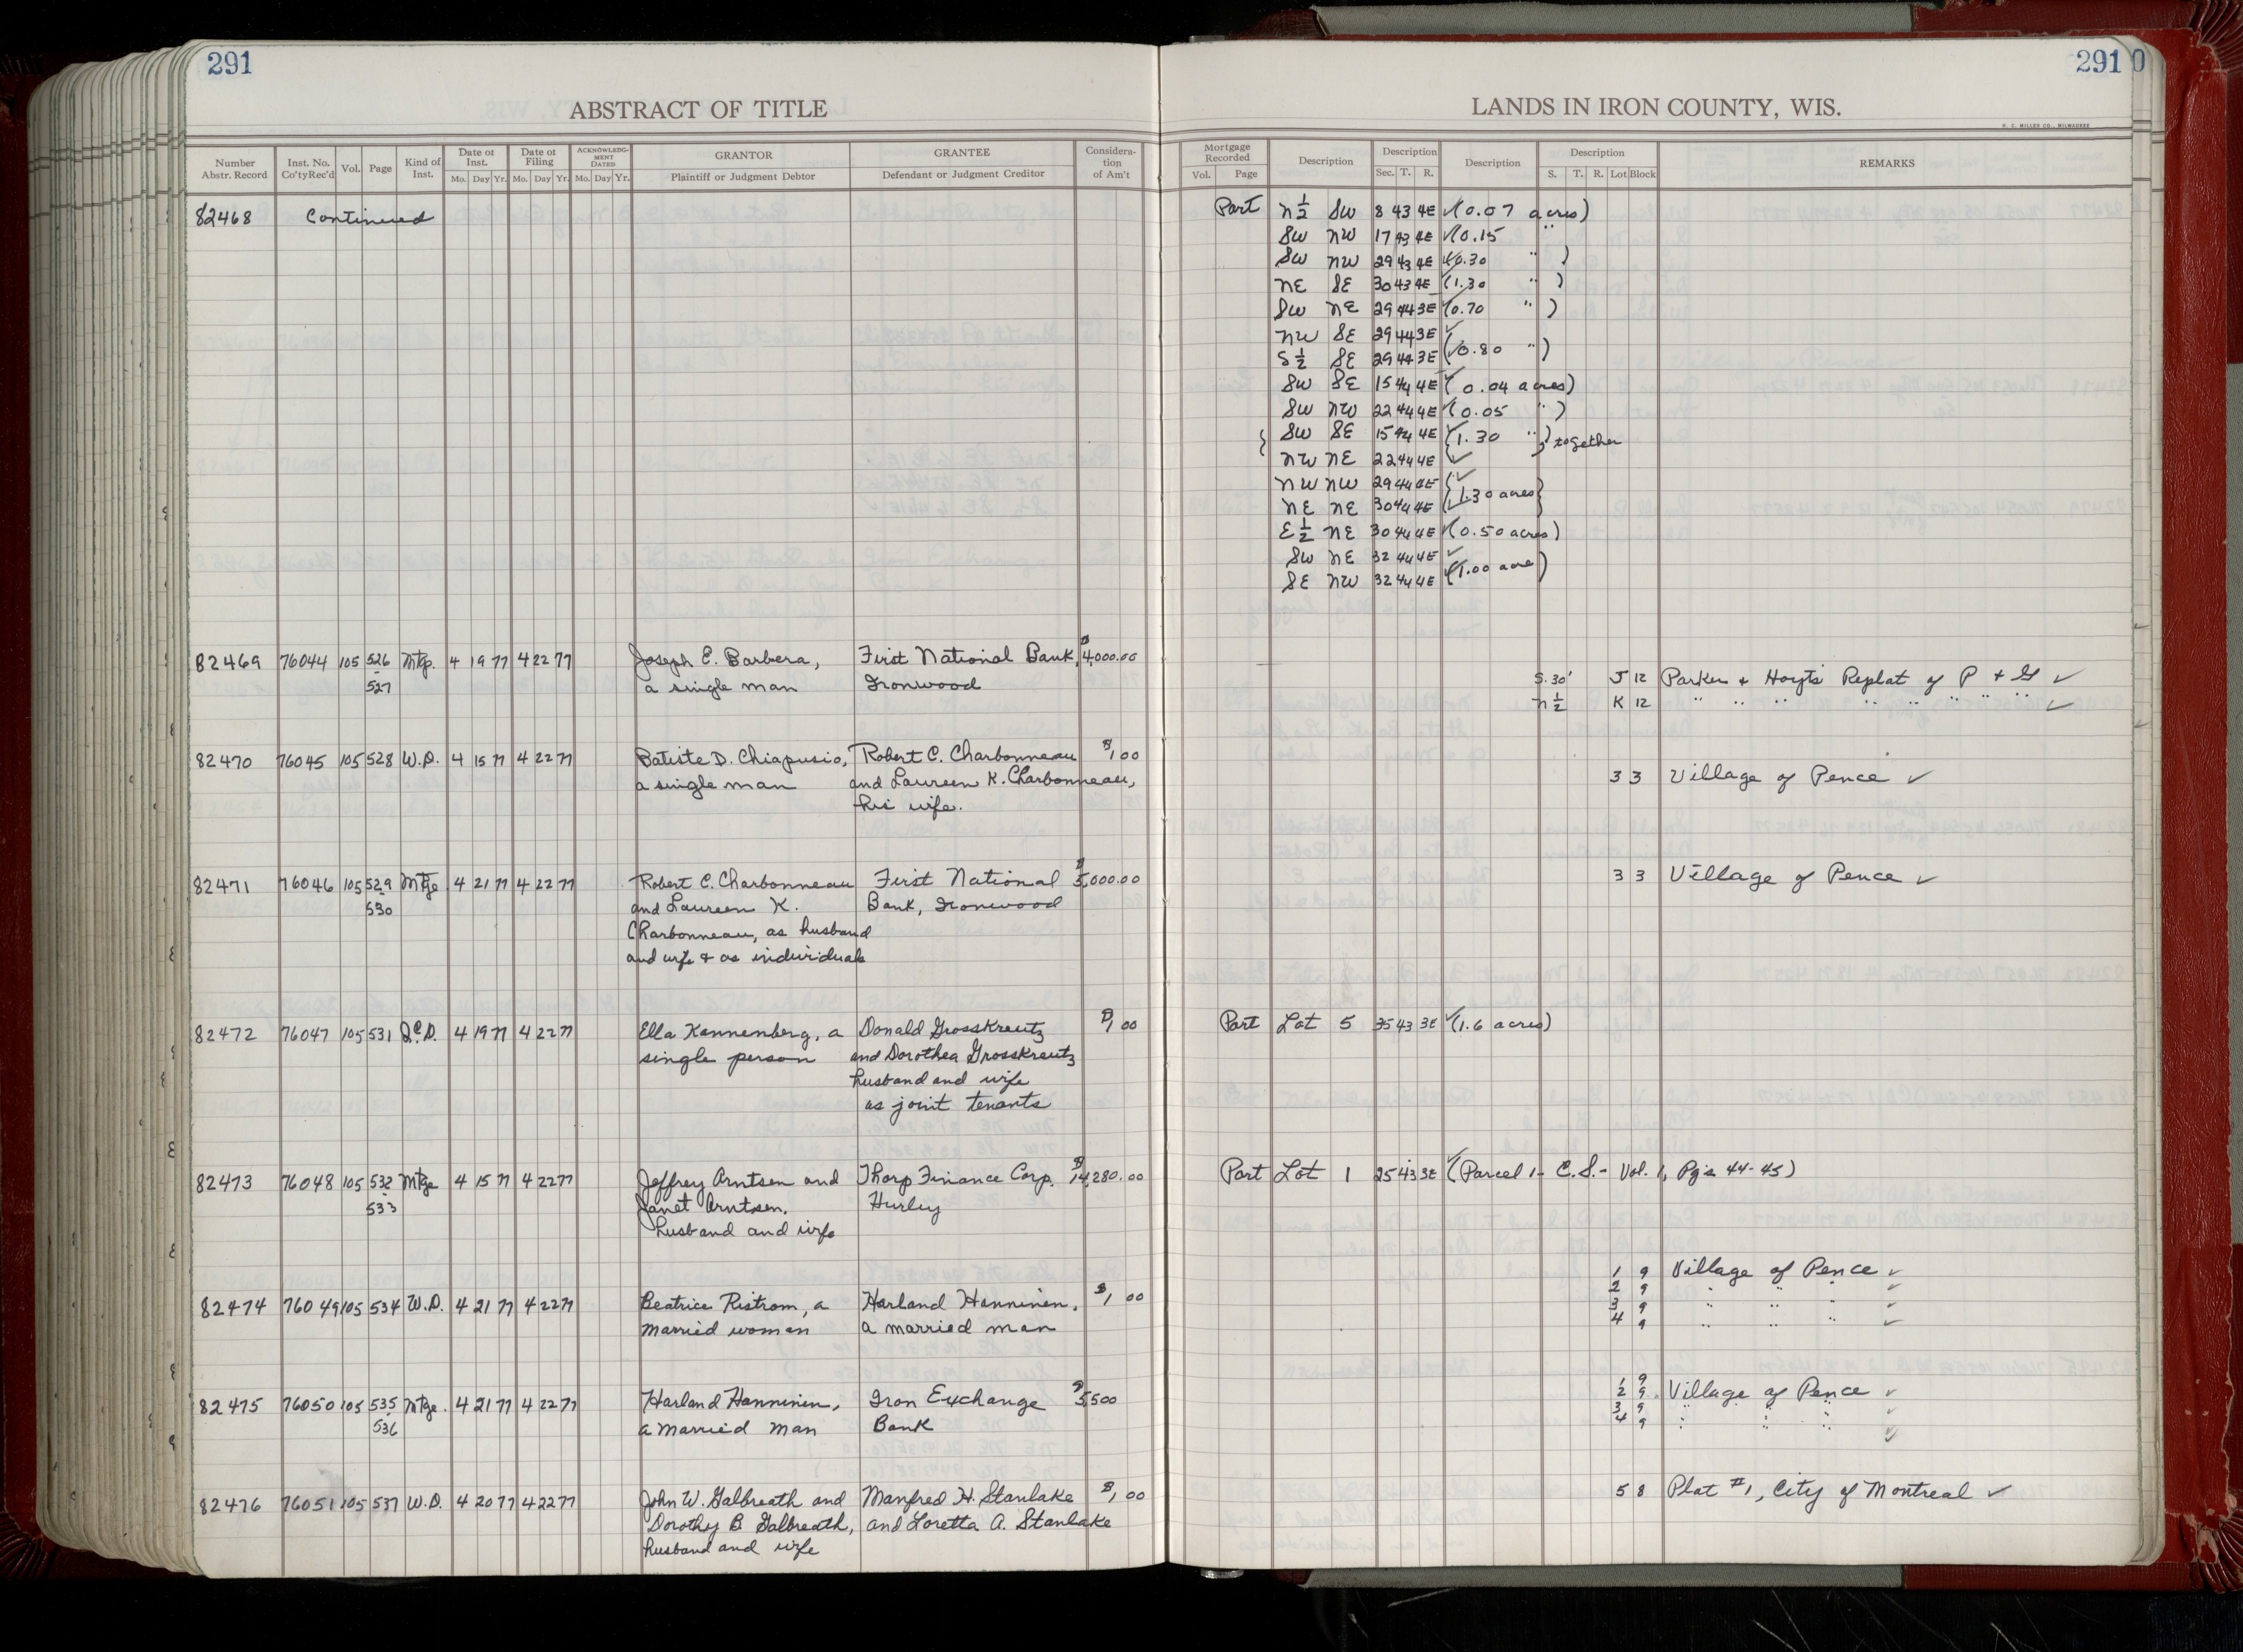 291
ABSTRACT OF TITLE
Number Abstr. Record Inst. No. Co'ty Rec'd Vol. Page Kind of Inst. Date of Inst. Mo. Day Yr. Date of Filing Mo. Day Yr. ACKNOWLEDGMENT DATED Mo. Day Yr. GRANTOR Plaintiff or Judgment Debtor GRANTEE Defendant or Judgment Creditor Consideration of Am't
82468 Continued
82469 76044 105 526 Mtge. 4 19 77 4 22 77 Joseph E. Barbera, First National Bank, $4,000.00
527 a single man Ironwood
82470 76045 105 528 W.D. 4 15 77 4 22 77 Batiste D. Chiapusio, Robert C. Charbonneau $1.00
a single man and Laureen K. Charbonneau,
his wife.
82471 76046 105 529 Mtge 4 21 77 4 22 77 Robert C. Charbonneau First National $5,000.00
530 and Laureen K. Bank, Ironwood
Charbonneau, as husband
and wife & as individuals
82472 76047 105 531 Q.C.D. 4 19 77 4 22 77 Ella Kannenberg, a Donald Grosskreutz $1.00
single person and Dorothea Grosskreutz
husband and wife
as joint tenants
82473 76048 105 532 Mtge 4 15 77 4 22 77 Jeffrey Arntsen and Thorp Finance Corp. $14,280.00
533 Janet Arntsen, Hurley
husband and wife
82474 76049 105 534 W.D. 4 21 77 4 22 77 Beatrice Ristrom, a Harland Hanninen, $1.00
married woman a married man
82475 76050 105 535 Mtge. 4 21 77 4 22 77 Harland Hanninen, Iron Exchange $5,500
536 a married man Bank
82476 76051 105 537 W.D. 4 20 77 4 22 77 John W. Galbreath and Manfred H. Stanlake $1.00
Dorothy B. Galbreath, and Loretta A. Stanlake
husband and wife
291 0
LANDS IN IRON COUNTY, WIS.
H. C. MILLER CO., MILWAUKEE
Mortgage Recorded Vol. Page Description Description Sec. T. R. Description Description S. T. R. Lot Block REMARKS
Part N½ SW 8 43 4E ✓(0.07 acres)
SW NW 17 43 4E ✓(0.15 "
SW NW 29 43 4E ✓(0.30 " )
NE SE 30 43 4E ✓(1.30 " )
SW NE 29 44 3E ✓(0.70 " )
NW SE 29 44 3E ✓
S½ SE 29 44 3E (✓0.80 " )
SW SE 15 44 4E ✓( 0.04 acres)
SW NW 22 44 4E ✓(0.05 " )
{ SW SE 15 44 4E ✓{1.30 " } together
NW NE 22 44 4E ✓
NW NW 29 44 4E {✓
NE NE 30 44 4E {✓1.30 acres}
E½ NE 30 44 4E ✓(0.50 acres)
SW NE 32 44 4E ✓
SE NW 32 44 4E ✓(1.00 acre)
S. 30' J 12 Parker & Hoyt's Replat of P & G ✓
N½ K 12 " " " " " " " " ✓
3 3 Village of Pence ✓
3 3 Village of Pence ✓
Part Lot 5 35 43 3E ✓(1.6 acres)
Part Lot 1 25 43 3E ✓(Parcel 1- C.S.- Vol. 1, Pgs. 44-45)
1 9 Village of Pence ✓
2 9 " " " ✓
3 9 " " " ✓
4 9 " " " ✓
1 9
2 9 Village of Pence ✓
3 9 " " " ✓
4 9 " " " ✓
5 8 Plat #1, City of Montreal ✓